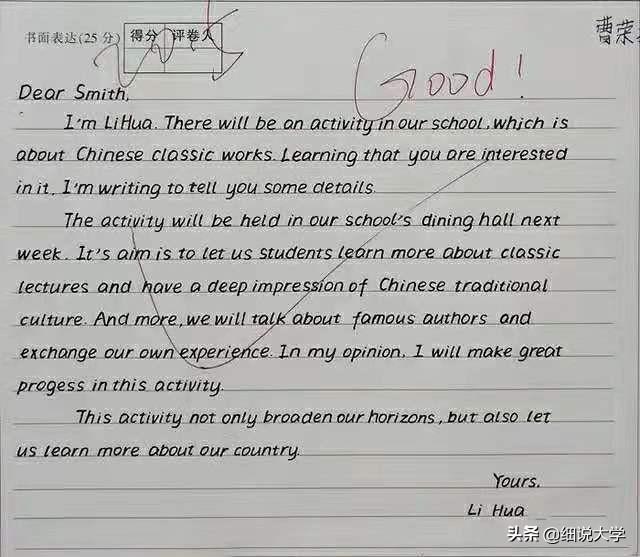 书面表达(25分) 得分 评卷人
曹荣
Good!
Dear Smith,
I'm LiHua. There will be an activity in our school, which is
about Chinese classic works. Learning that you are interested
in it, I'm writing to tell you some details.
The activity will be held in our school's dining hall next
week. It's aim is to let us students learn more about classic
lectures and have a deep impression of Chinese traditional
culture. And more, we will talk about famous authors and
exchange our own experience. In my opinion, I will make great
progess in this activity.
This activity not only broaden our horizons, but also let
us learn more about our country.
Yours,
Li Hua
头条 @细说大学